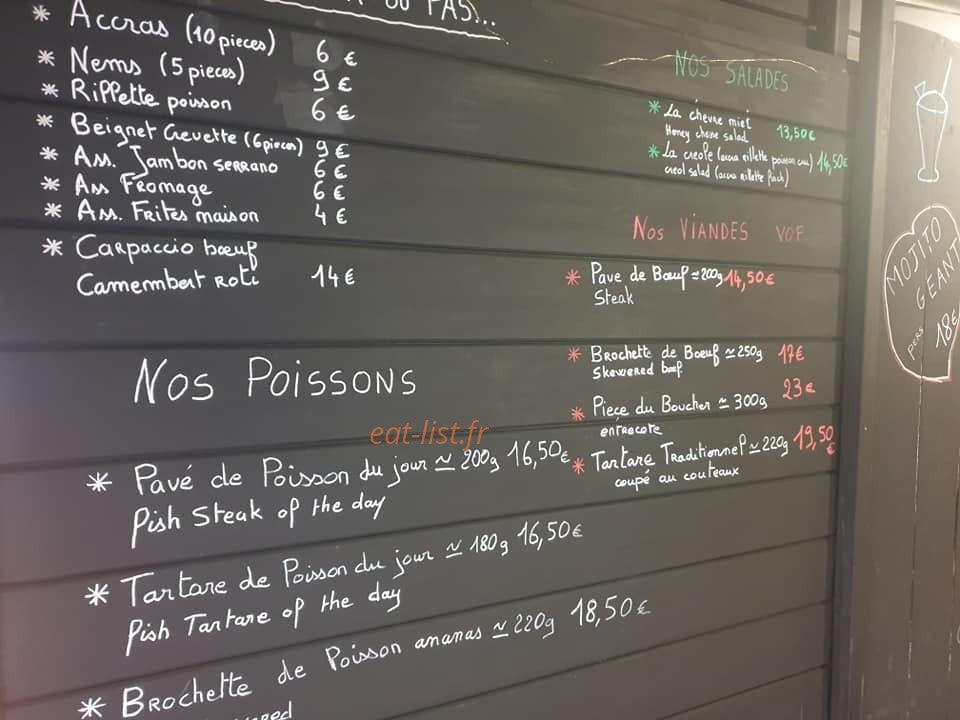 OU PAS...
* Accras (10 pieces) 6 €
* Nems (5 pieces) 9 €
* Rillette poisson 6 €
* Beignet Crevette (6 pieces) 9 €
* Ass. Jambon SERRANO 6 €
* Ass Fromage 6 €
* Ass. Frites maison 4 €
* Carpaccio bœuf
Camembert Roti 14 €
Nos Poissons
* Pavé de Poisson du jour ≃ 200g 16,50€
Fish Steak of the day
* Tartare de Poisson du jour ≃ 180g 16,50€
Fish Tartare of the day
* Brochette de Poisson ananas ≃ 220g 18,50€
NOS SALADES
* La chèvre miel 13,50€
Honey chevre salad
* La creole (accra rillette poisson 14,50€
creol salad (accra rillette
Nos VIANDES VOF
* Pave de Bœuf ≃ 200g 14,50€
Steak
* Brochette de Boeuf ≃ 250g 17€
Skewered beef
* Piece du Boucher ≃ 300g 23€
entrecote
* Tartare Traditionnel ≃ 220g 19,50€
coupé au couteaux
MOJITO
GÉANT
pers 18€
eat-list.fr